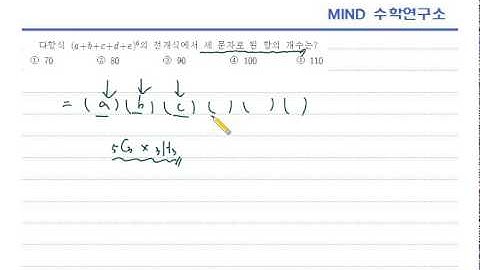 MIND 수학연구소
다항식 (a+b+c+d+e)⁶의 전개식에서 세 문자로 된 항의 개수는?
① 70 ② 80 ③ 90 ④ 100 ⑤ 110
= (a)(b)(c)( )( )( )
₅C₃ × ₃H₃